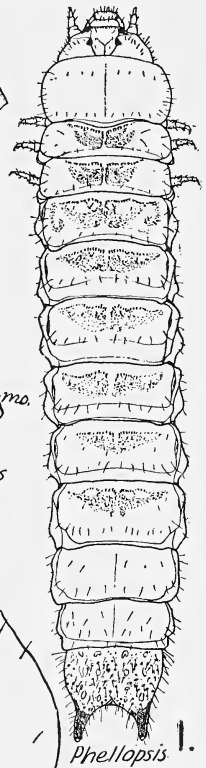 mo.
s
Phellopsis 1.